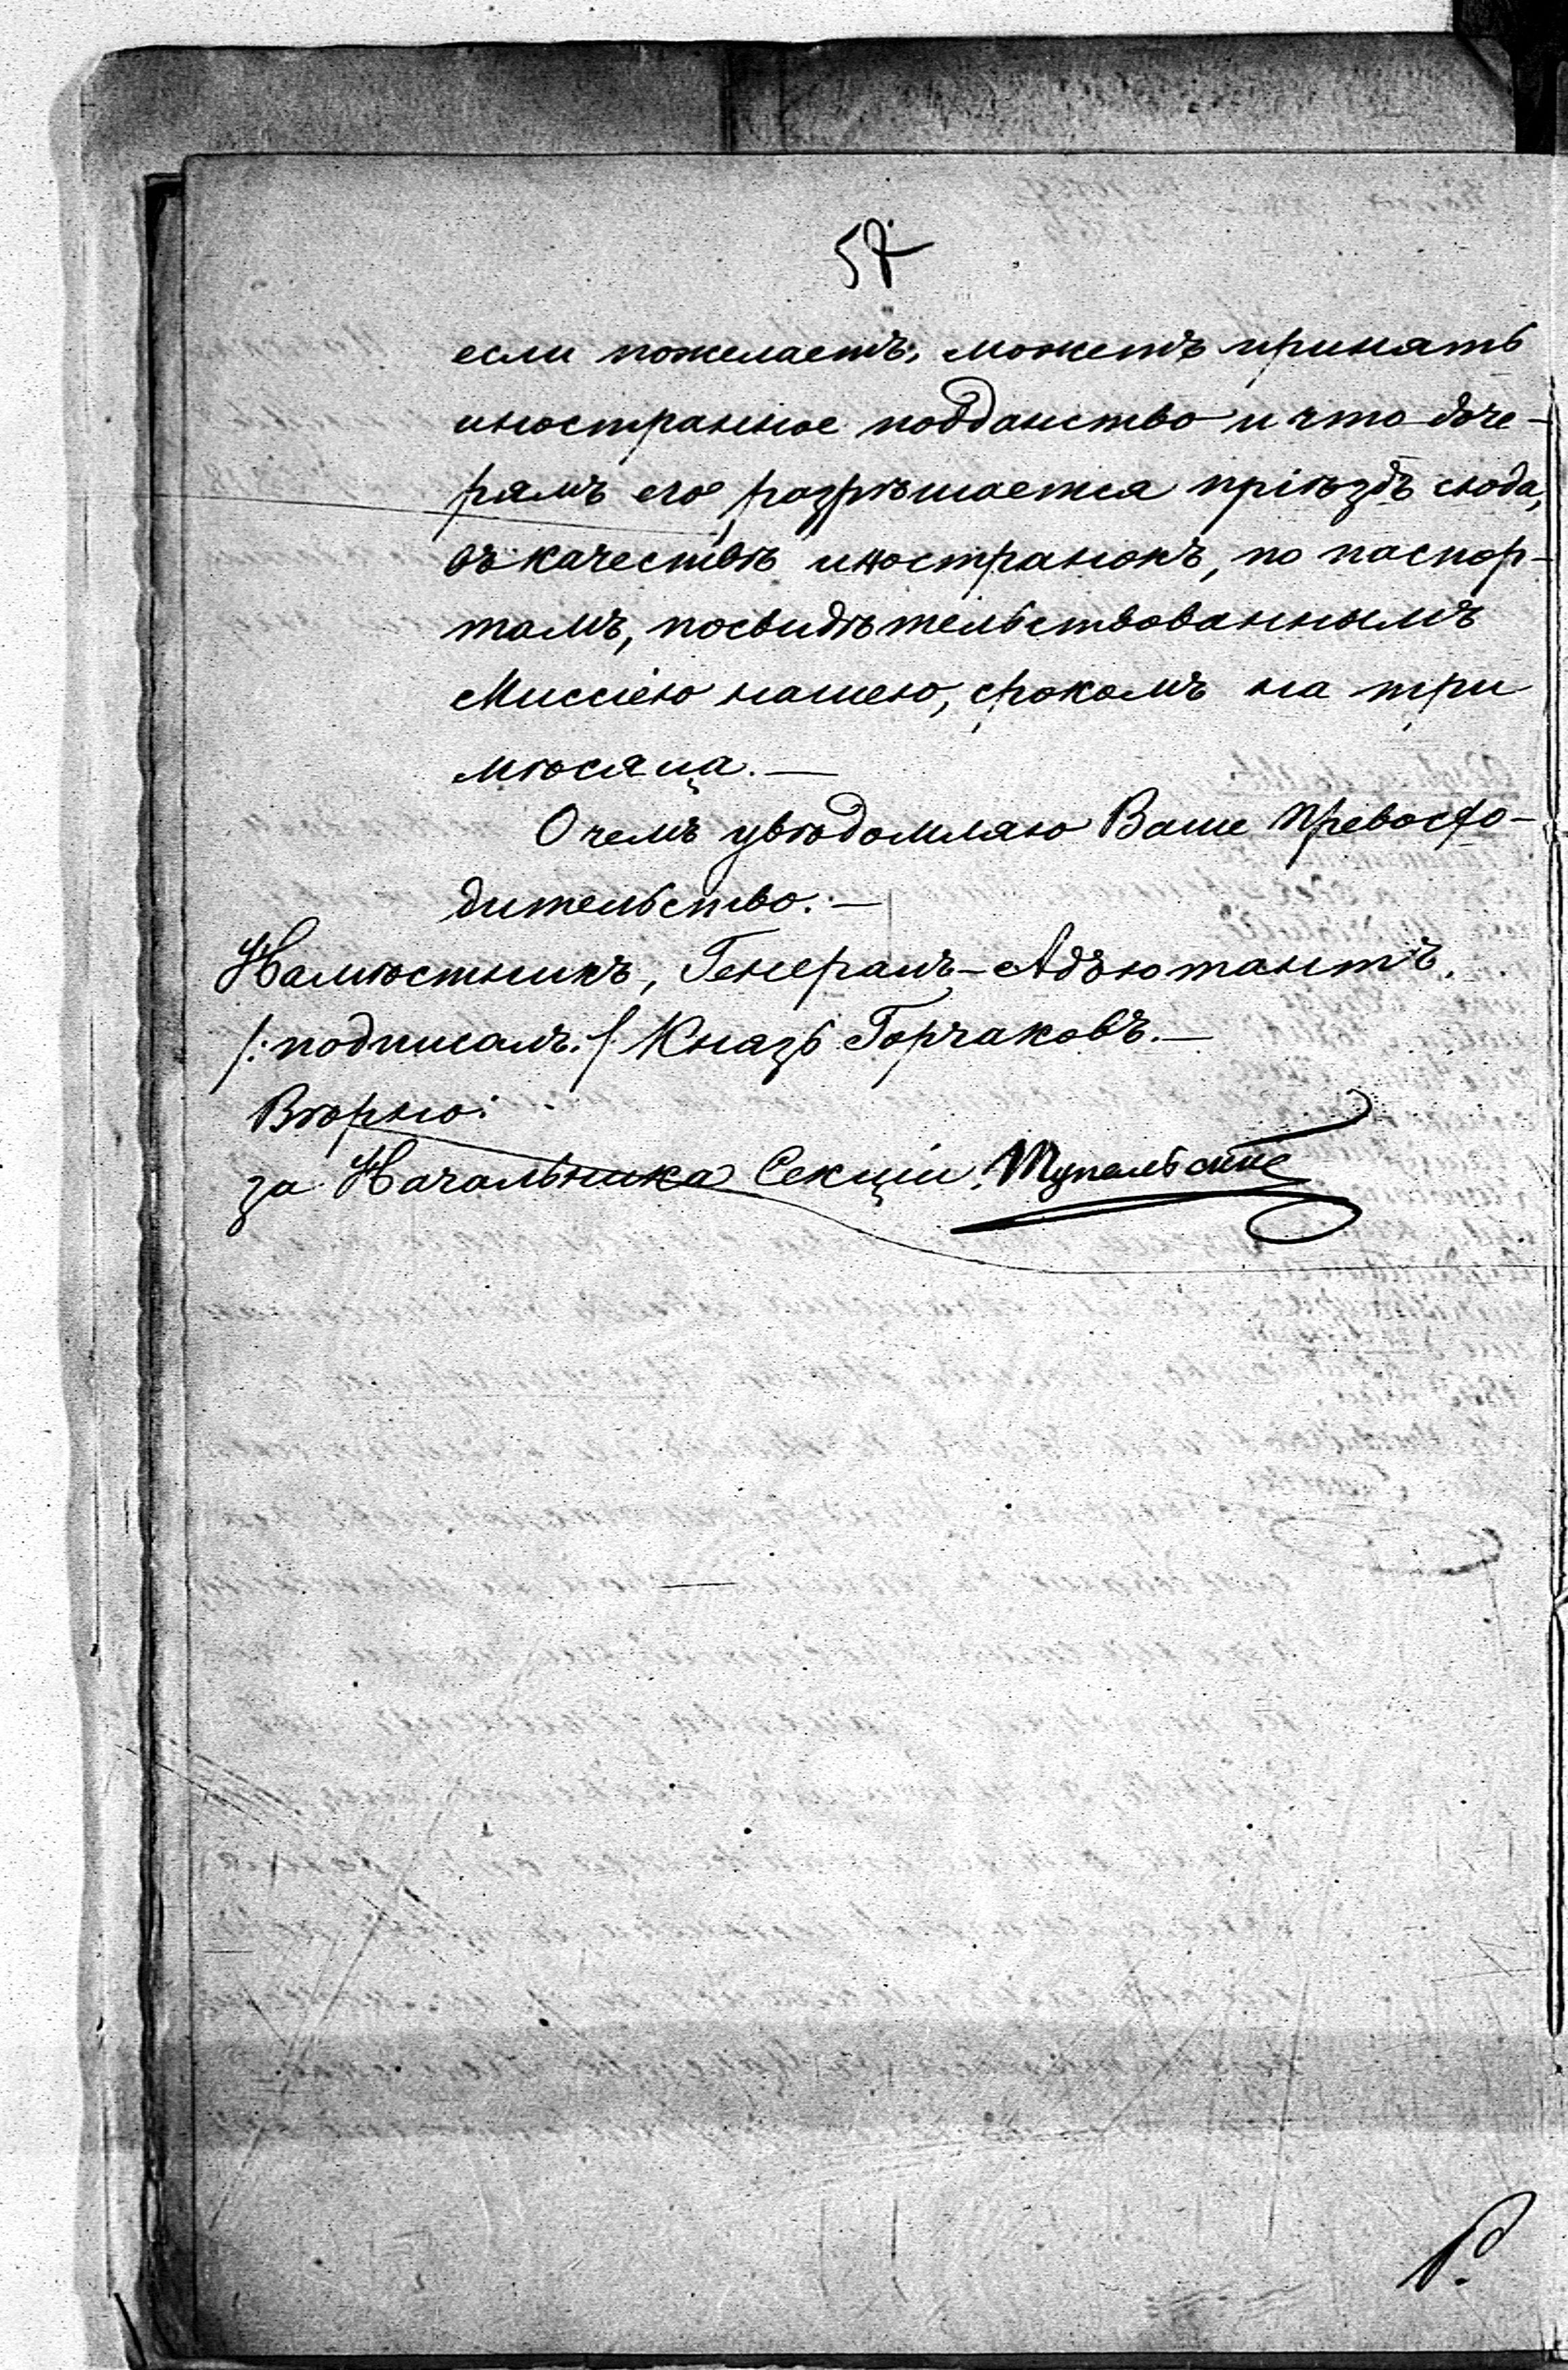 57.
если пожелаетъ, можетъ принять
иностранное подданство и что доче-
рямъ его разрѣшается пріѣздъ сюда,
въ качествѣ иностранокъ, по паспор-
тамъ, посвидѣтельствованнымъ
Миссіею нашею, срокомъ на три
мѣсяца. —
О чемъ увѣдомляю Ваше Превосхо-
дительство. —
Намѣстникъ, Генералъ-Адъютантъ,
/: подписалъ :/ Князь Горчаковъ. —
Вѣрно:
за Начальника Секціи